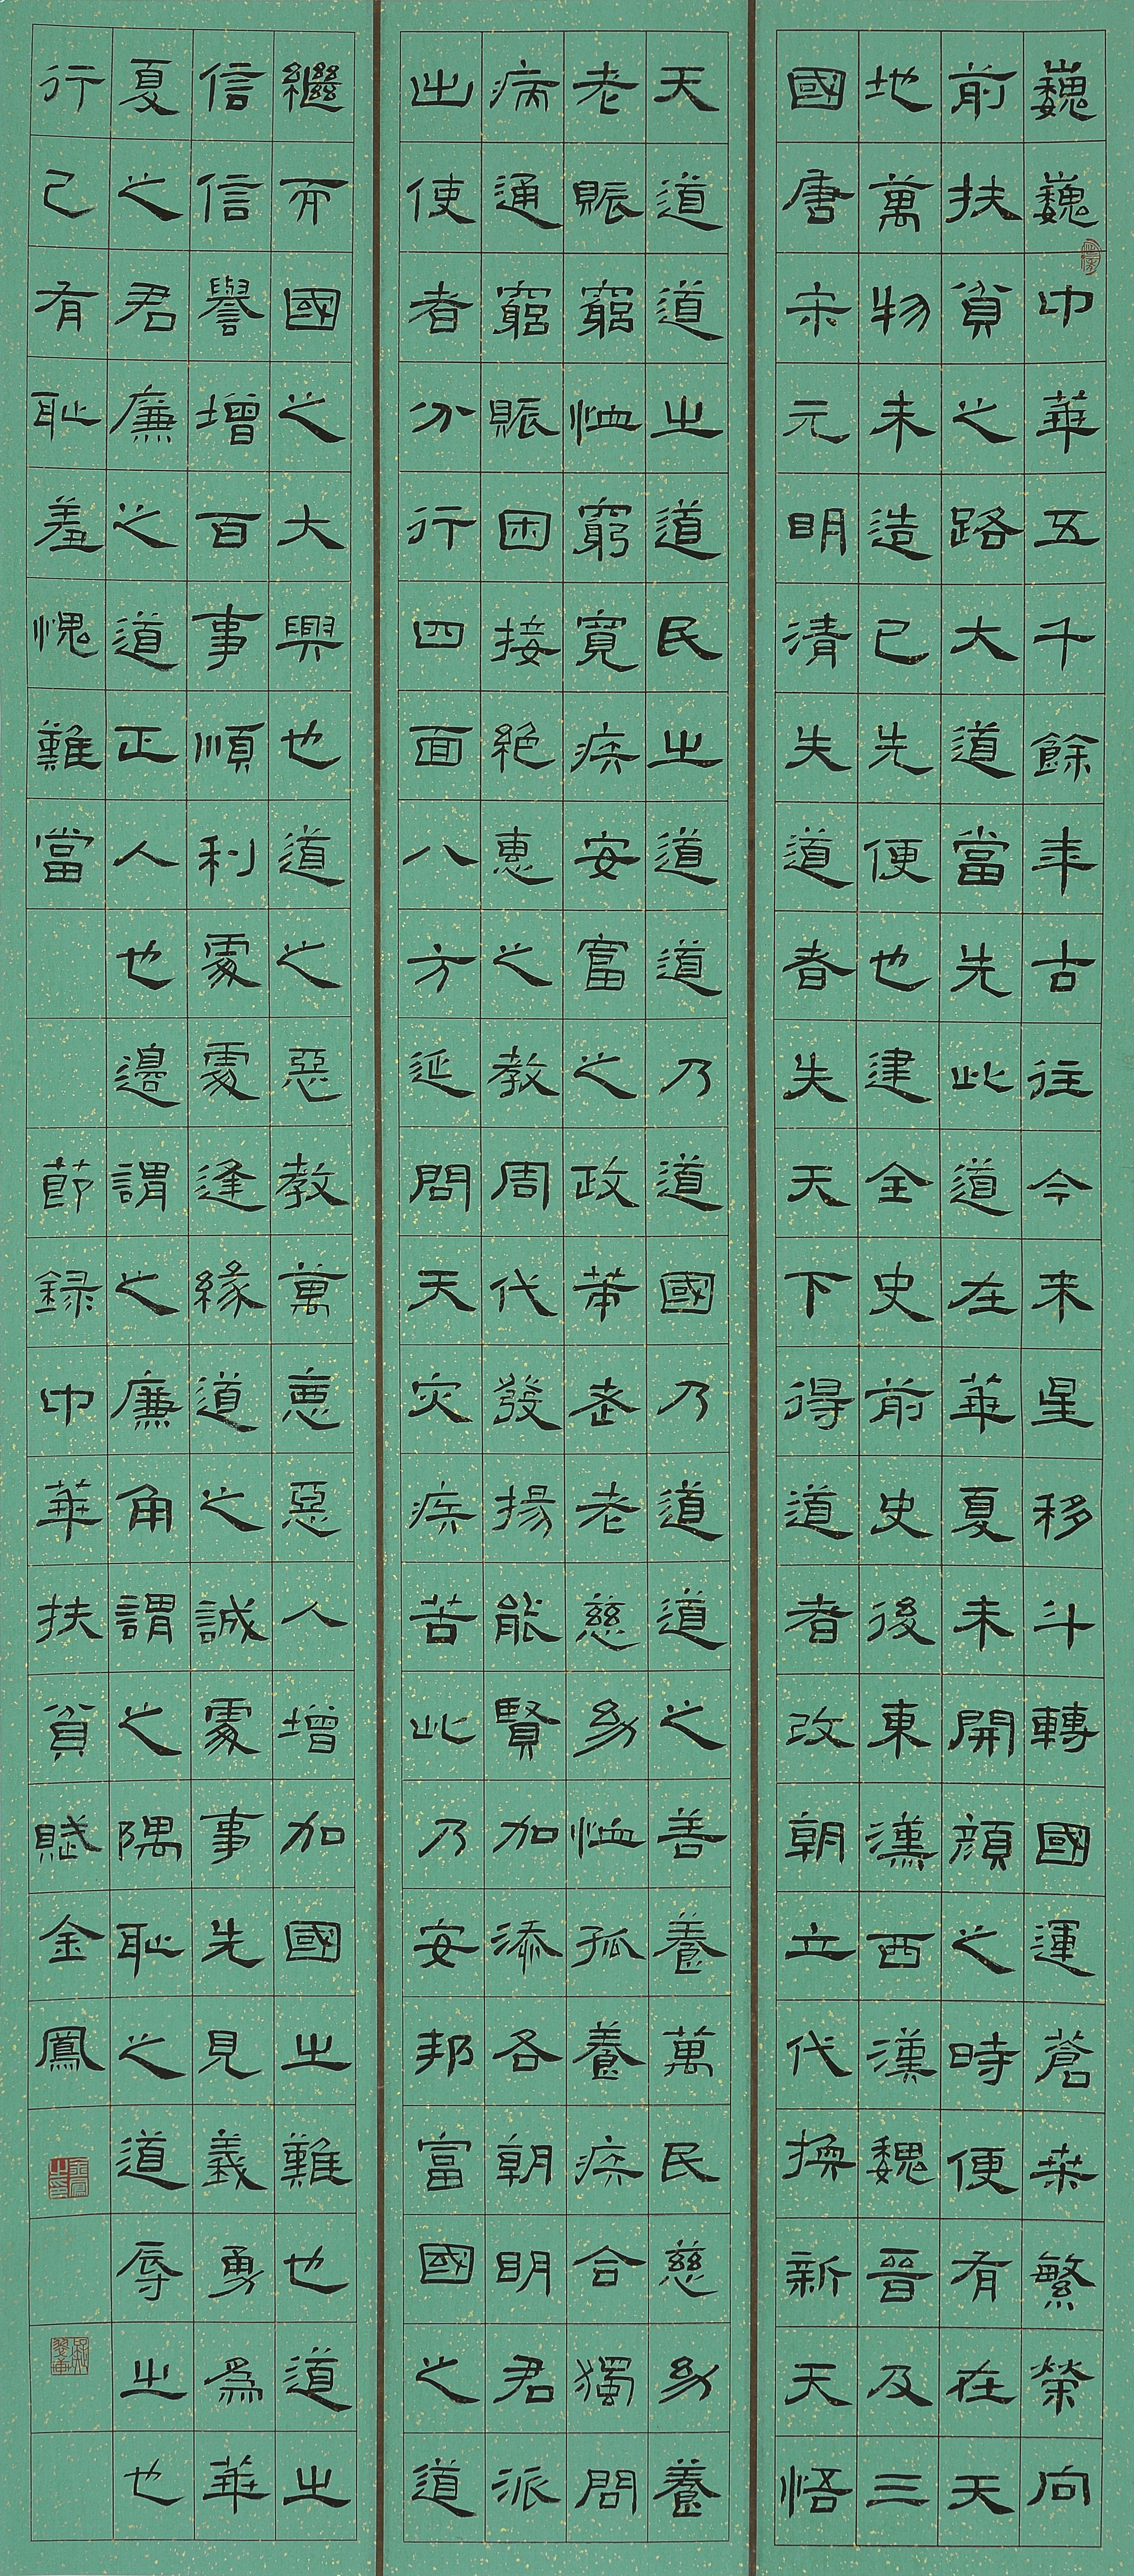 巍巍中華五千餘年古往今来星移斗轉國運蒼桑繁榮向
前扶貧之路大道當先此道在華夏未開顔之時便有在天
地萬物未造已先便也建全史前史後東漢西漢魏晉及三
國唐宋元明清失道者失天下得道者改朝立代換新天悟
天道道之道民之道道乃道國乃道道之善養萬民慈幼養
老賑窮恤窮寬疾安富之政苐老慈幼恤孤養疾合獨問
病通窮賑困接絶惠之教周代發揚能賢加添各朝明君派
出使者分行四面八方延問天灾疾苦此乃安邦富國之道
繼而國之大興也道之惡教萬恵惡人增加國之難也道之
信信譽增百事順利處處逢緣道之誠處事先見義勇為華
夏之君廉之道正人也邊謂之廉角謂之隅恥之道辱之也
行己有恥羞愧難當 節録中華扶貧賦金鳳